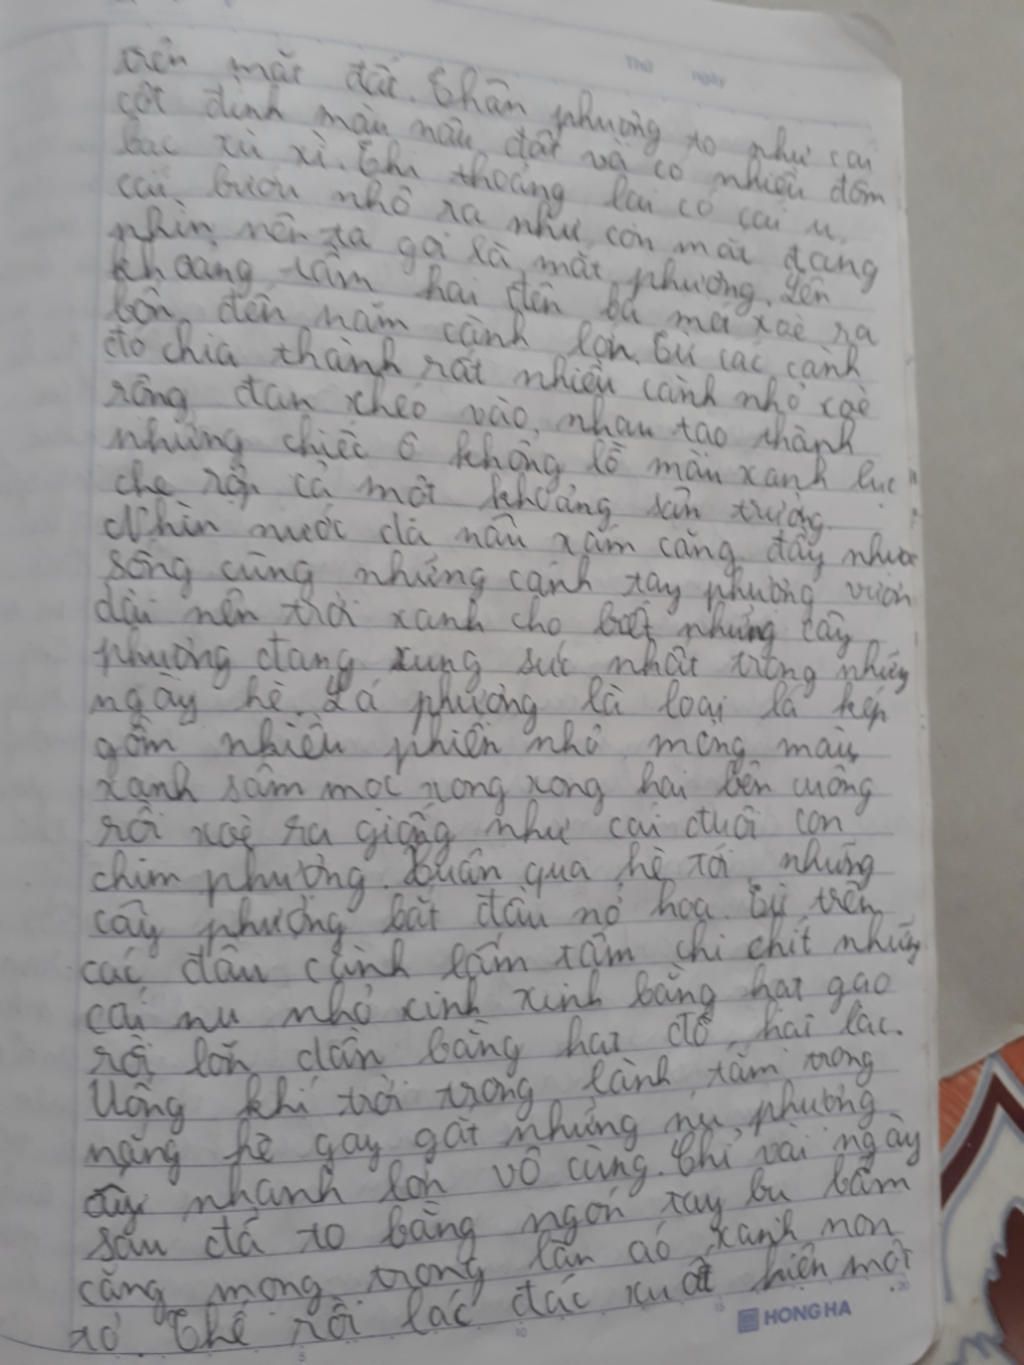 Thứ ngày
trên mặt đất. Thân phượng to như cái
cột đình màu nâu đất và có nhiều đốm
bạc xù xì. Thi thoảng lại có cái u,
cái bướu nhô ra như con mắt đang
nhìn nên ta gọi là mắt phượng. Lên
khoảng tầm hai đến ba mới xoè ra
bốn đến năm cành lớn. Từ các cành
đó chia thành rất nhiều cành nhỏ xoè
rộng đan chéo vào nhau tạo thành
những chiếc ô khổng lồ màu xanh lục
che rợp cả một khoảng sân trường.
Nhìn nước da nâu xám căng đầy nhựa
sống cùng những cánh tay phượng vươn
dài nên trời xanh cho biết những cây
phượng đang xung sức nhất trong những
ngày hè. Lá phượng là loại lá kép
gồm nhiều phiến nhỏ mỏng màu
xanh sẫm mọc xong xong hai bên cuống
rồi xoè ra giống như cái đuôi con
chim phượng. Xuân qua hè tới những
cây phượng bắt đầu nở hoa. Từ trên
các đầu cành lấm tấm chi chít những
cái nụ nhỏ xinh xinh bằng hạt gạo
rồi lớn dần bằng hạt đỗ, hạt lạc.
Uống khí trời trong lành tắm trong
nắng hè gay gắt những nụ phượng
ấy nhanh lớn vô cùng. Chỉ vài ngày
sau đã to bằng ngón tay bụ bẫm
căng mọng trong lần áo xanh non
tơ. Thế rồi lác đác xuất hiện một
HONG HA
5 10 15 20